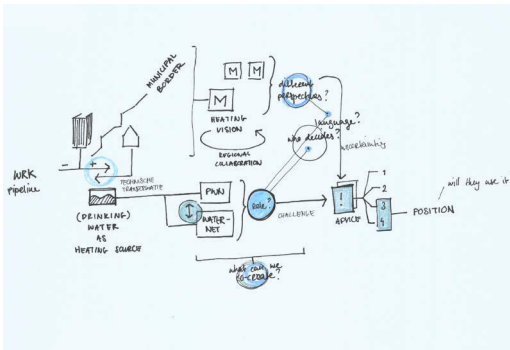 MUNICIPAL
BORDER
M
M M
HEATING
VISION
REGIONAL
COLLABORATION
different
perspectives?
language?
who decides?
uncertainty
WRK
pipeline
- +
TECHNISCHE
(DRINKING)
WATER
AS
HEATING SOURCE
PWN
WATER-
NET
Role?
CHALLENGE
!
ADVICE
1
2
3
4
POSITION
will they use it
what can we
co-create?